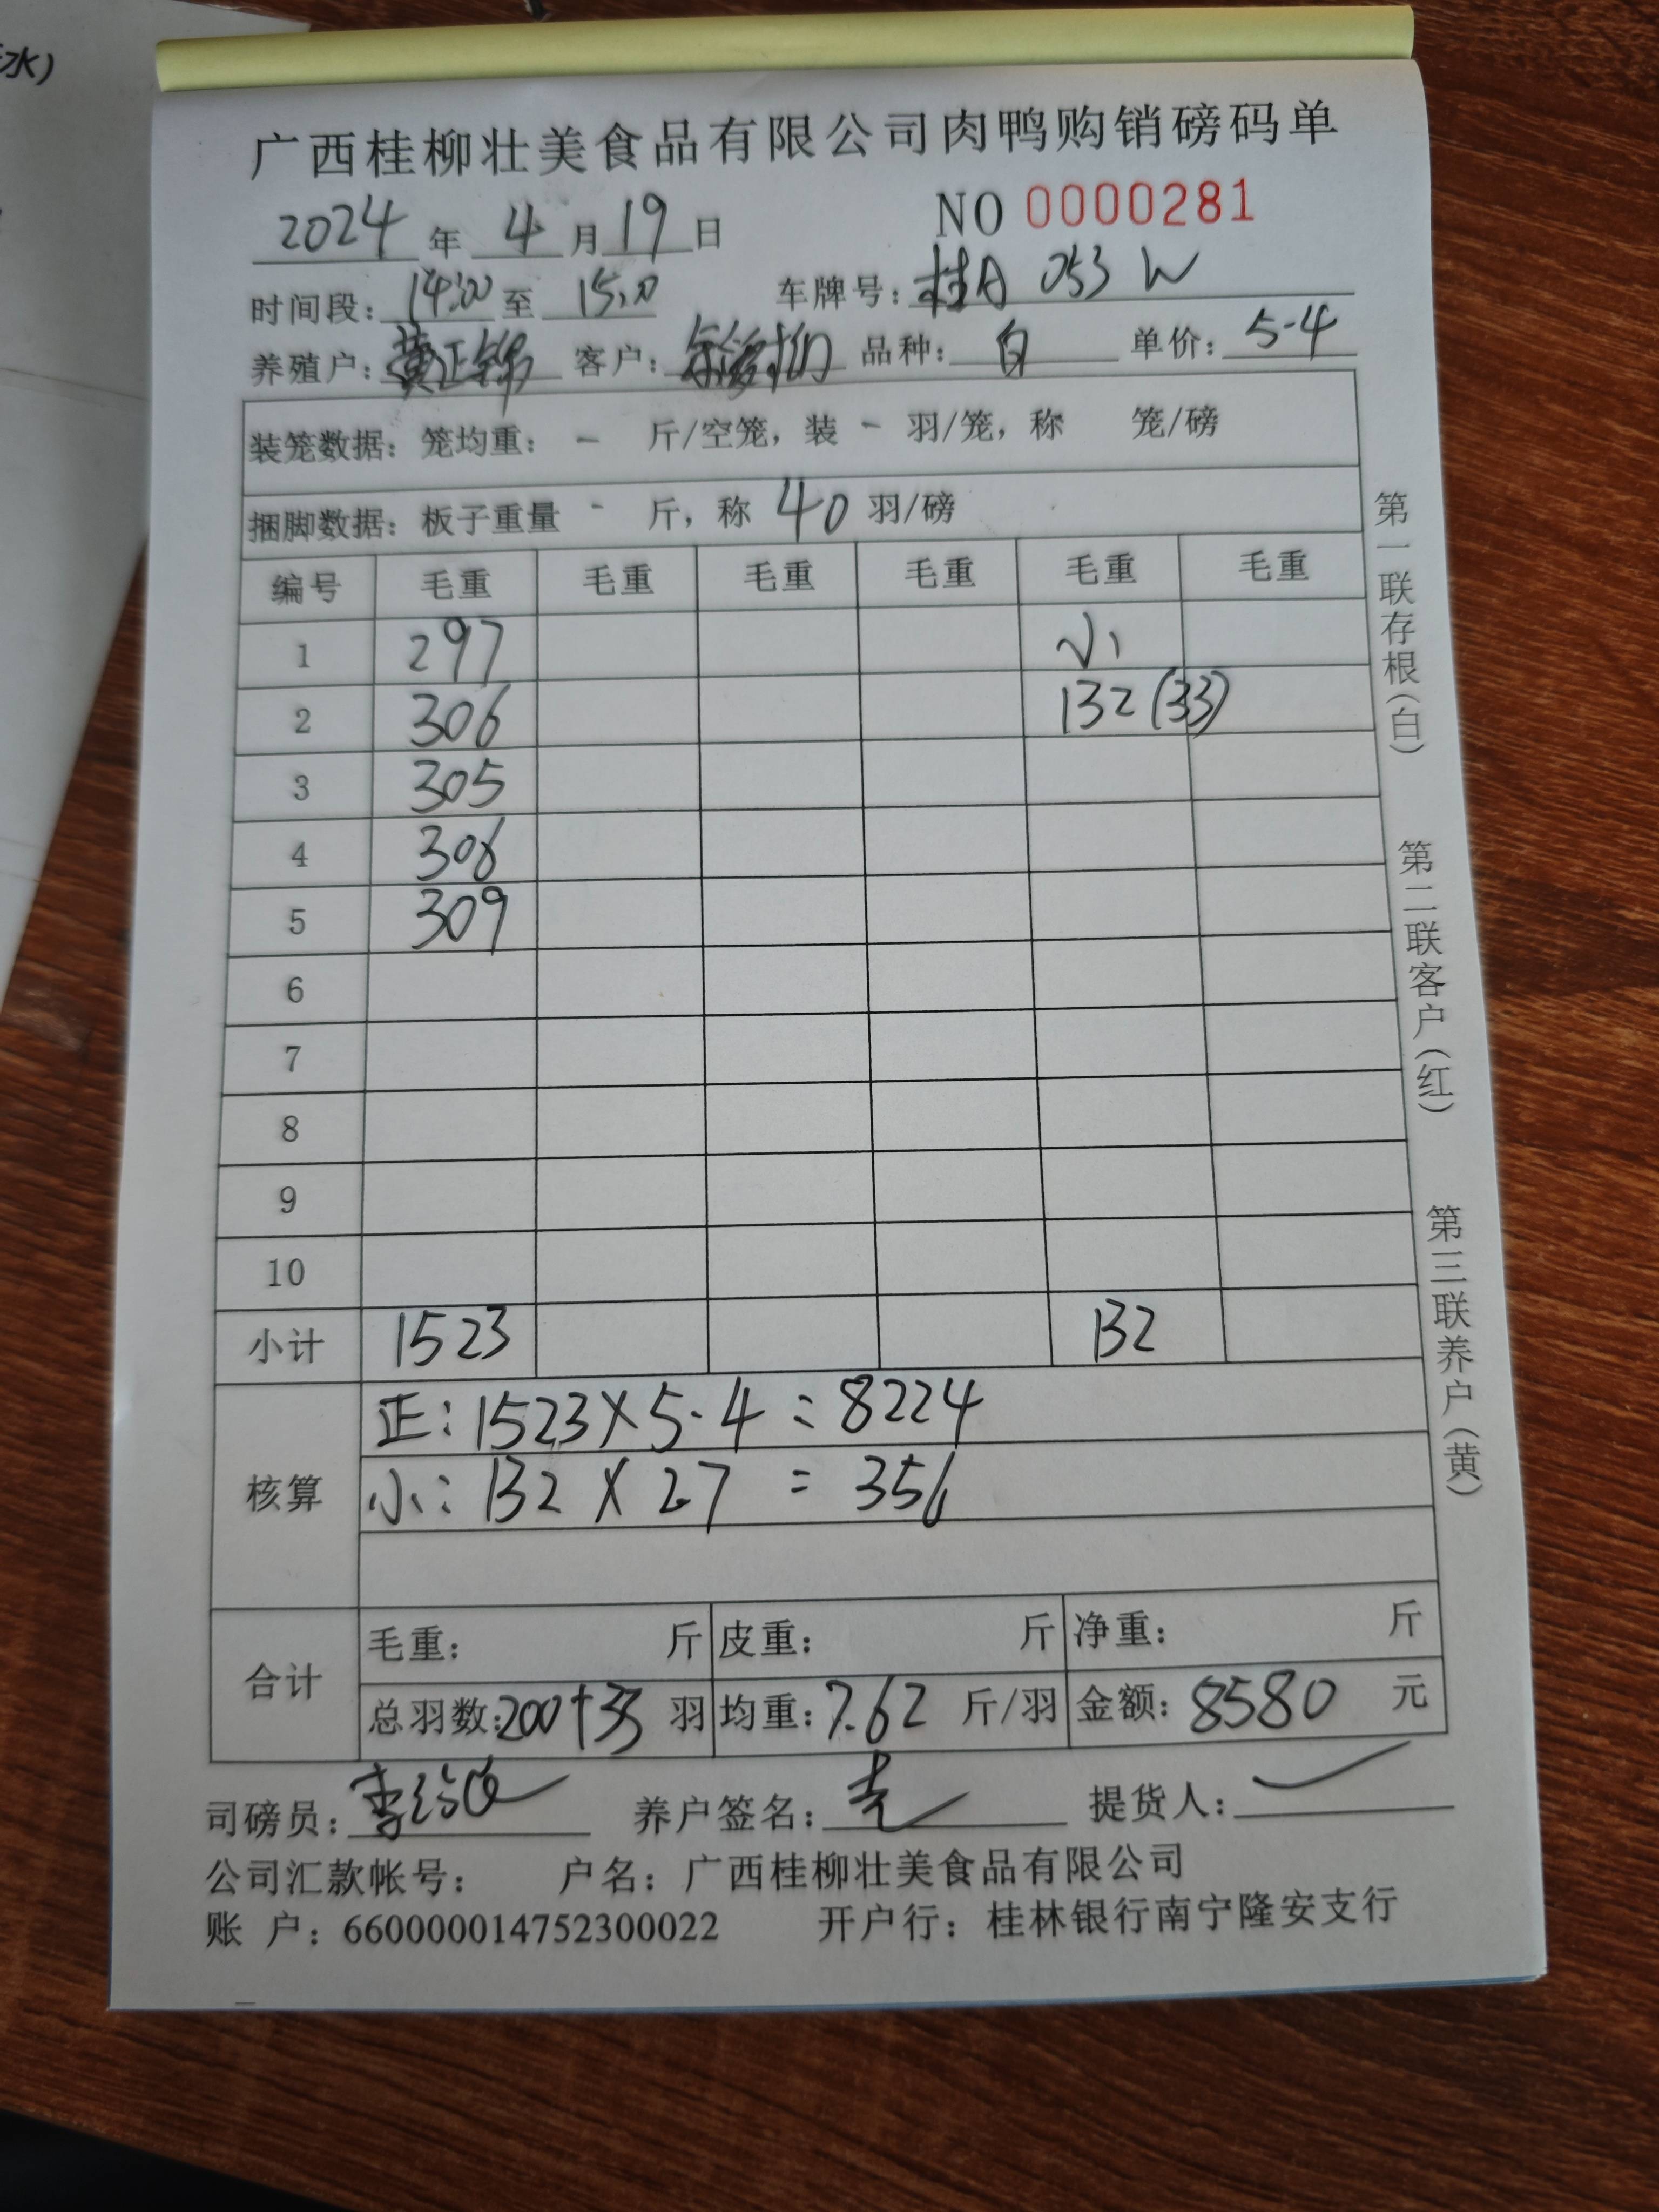 水)
广西桂柳壮美食品有限公司肉鸭购销磅码单
2024 年 4 月 19 日 NO 0000281
时间段: 14:00 至 15:10 车牌号: 桂A 053 W
养殖户: 黄正锦 客户: 品种: 白 单价: 5.4
装笼数据: 笼均重: - 斤/空笼, 装 - 羽/笼, 称 笼/磅
捆脚数据: 板子重量 - 斤, 称 40 羽/磅
编号 毛重 毛重 毛重 毛重 毛重 毛重
1 297 小
2 306 132 (33)
3 305
4 306
5 309
6
7
8
9
10
小计 1523 132
核算
正: 1523 X 5.4 = 8224
小: 132 X 2.7 = 356
合计
毛重: 斤 皮重: 斤 净重: 斤
总羽数: 200+33 羽 均重: 7.62 斤/羽 金额: 8580 元
司磅员: 养户签名: 提货人:
公司汇款帐号: 户名: 广西桂柳壮美食品有限公司
账 户: 660000014752300022 开户行: 桂林银行南宁隆安支行
第一联存根(白)
第二联客户(红)
第三联养户(黄)